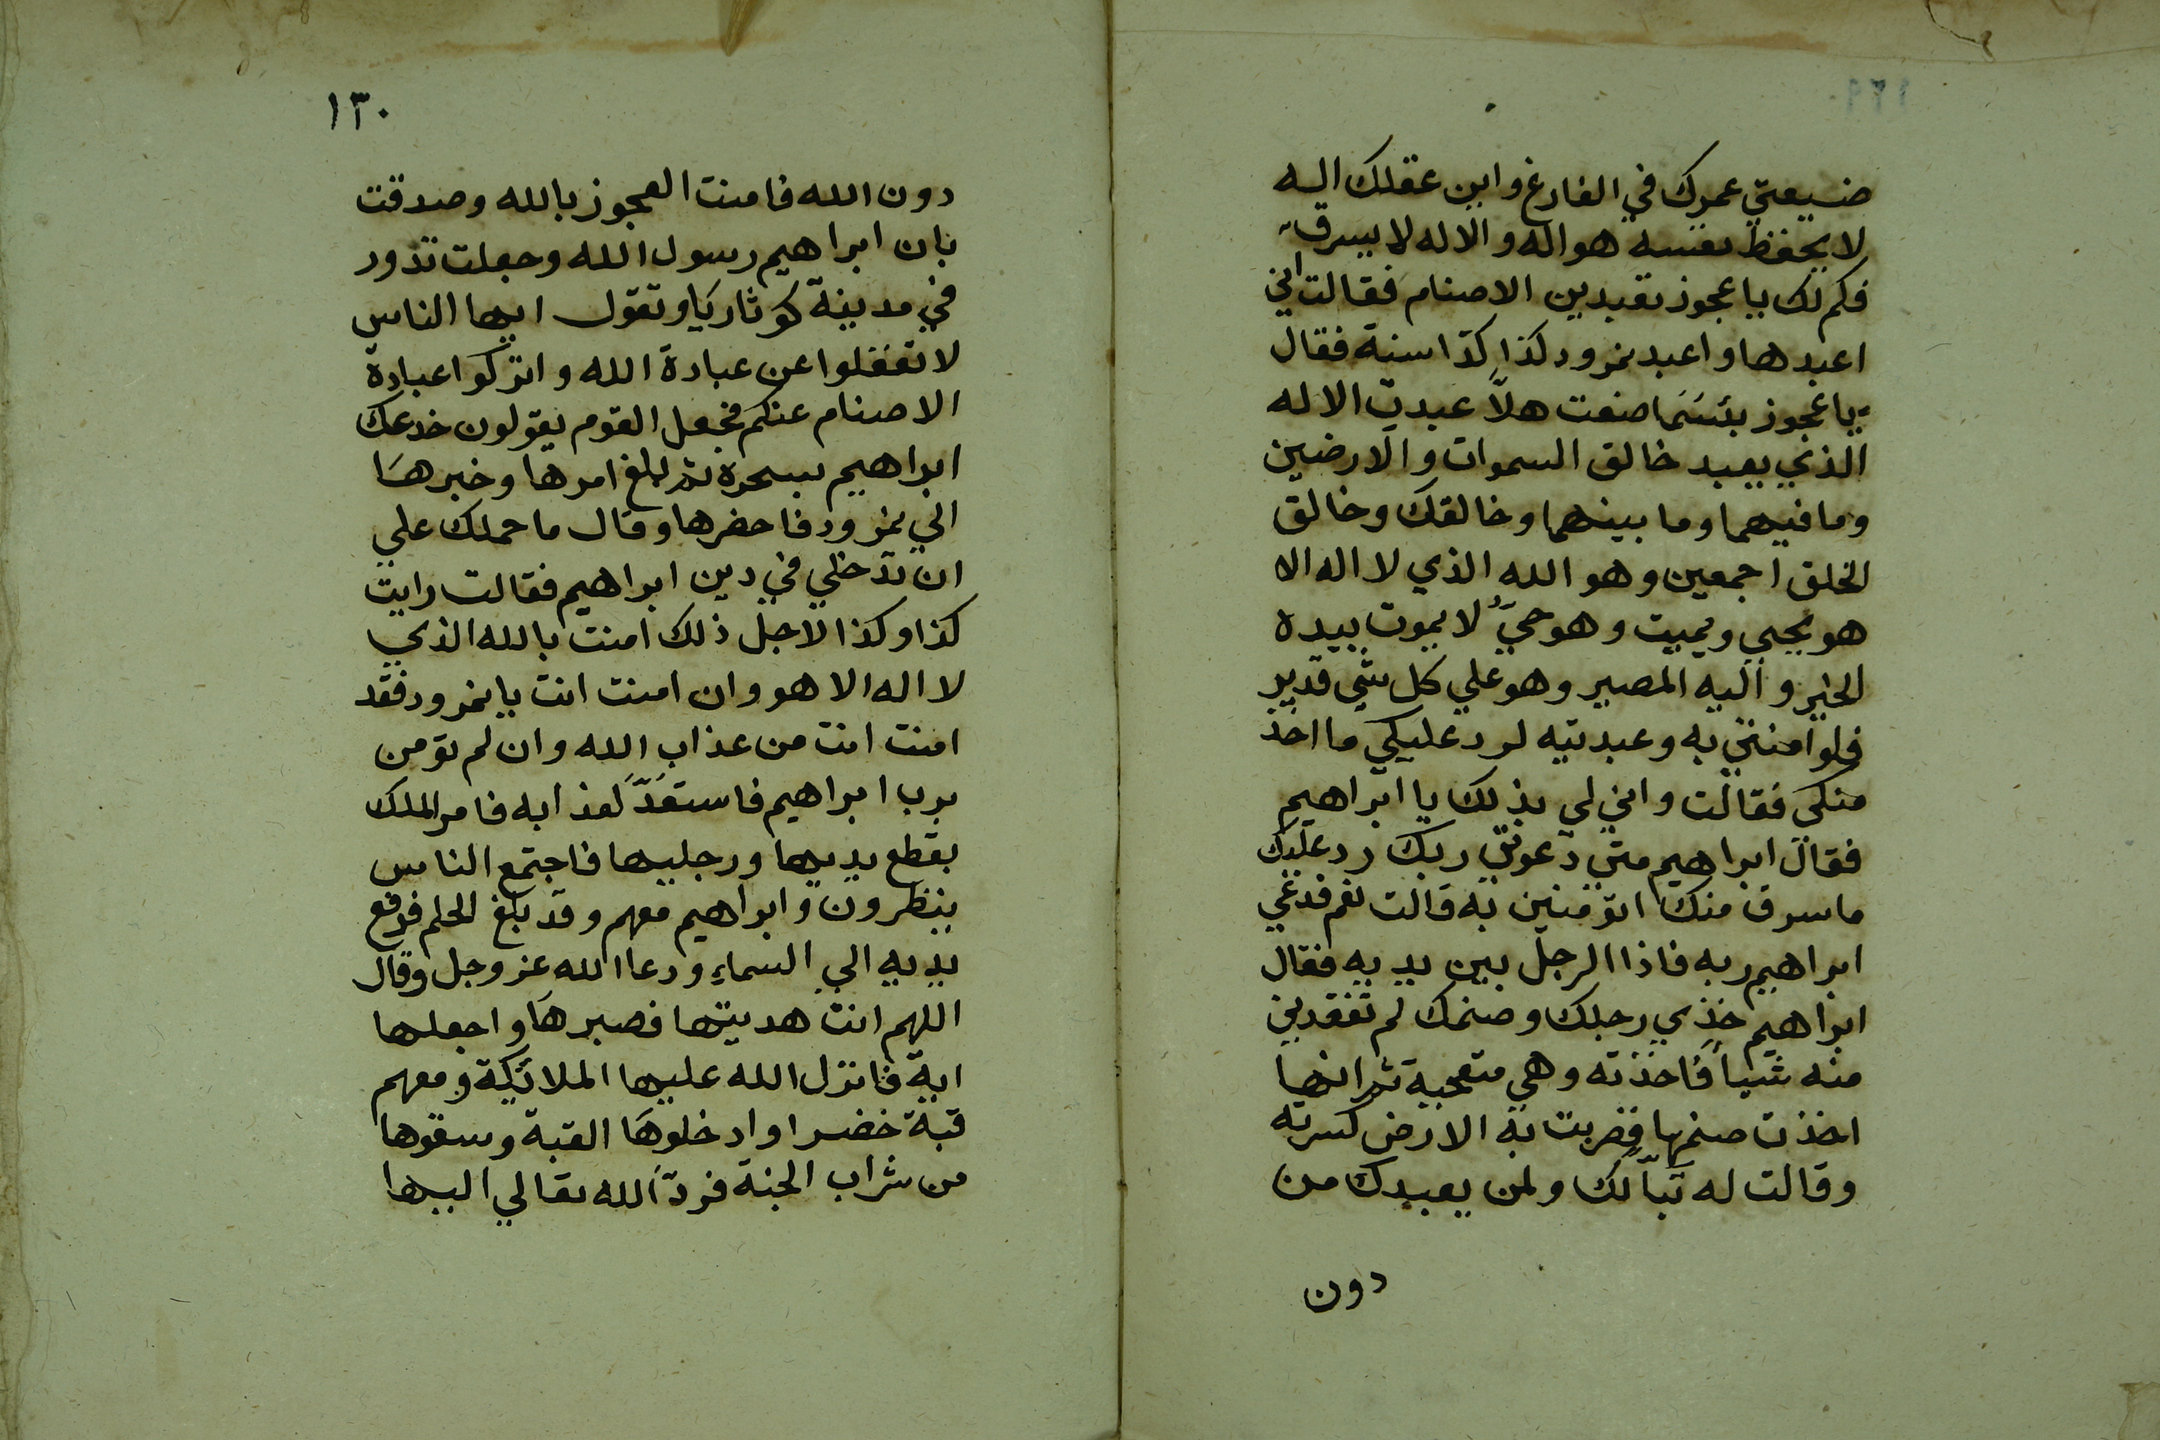 ضيعتي عمرك في الفارغ واين عقلك اليه
لا يحفظ نفسه هو اله والاله لا يسرق
فكم لك يا عجوز تعبدين الاصنام فقالت اني
اعبدها واعبد نمرود كذا كذا سنة فقال
يا عجوز بئسما صنعت هلّا عبدت الاله
الذي يعبد خالق السموات والارضين
وما فيهما وما بينهما وخالقك وخالق
الخلق اجمعين وهو الله الذي لا اله الا
هو يحيي ويميت وهو حيّ لا يموت بيده
الخير واليه المصير وهو علي كل شي قدير
فلو امنتي به وعبدتيه لرد عليكي ما اخذ
منكي فقالت واني لي بذلك يا ابراهيم
فقال ابراهيم متي دعوتي ربك رد عليك
ما سرق منك اتؤمنين به قالت نعم فدعي
ابراهيم ربه فاذا الرجل بين يديه فقال
ابراهيم خذي رحلك وصنمك لم تفقدين
منه شيأ فاخذته وهي متعجبة ثم انها
اخذت صنمها فضربت به الارض كسرته
وقالت له تبّاً لك ولمن يعبدك من
دون
١٣٠
دون الله فامنت العجوز بالله وصدقت
بان ابراهيم رسول الله وجعلت تدور
في مدينة كوثاريا وتقول ايها الناس
لا تغفلوا عن عبادة الله واتركوا عبادة
الاصنام عنكم فجعل القوم يقولون خدعك
ابراهيم بسحره ثم بلغ امرها وخبرها
الي نمرود فاحضرها وقال ما حملك علي
ان تدخلي في دين ابراهيم فقالت رايت
كذا وكذا لاجل ذلك امنت بالله الذي
لا اله الا هو وان امنت انت يا نمرود فقد
امنت انت من عذاب الله وان لم تؤمن
برب ابراهيم فاستعدّ لعذابه فامر الملك
بقطع يديها ورجليها فاجتمع الناس
ينظرون وابراهيم معهم وقد بلغ الحلم فرفع
يديه الي السماء ودعا الله عز وجل وقال
اللهم انت هديتها فصبرها واجعلها
اية فانزل الله عليها الملائكة ومعهم
قبة خضرا وادخلوها القبة وسقوها
من شراب الجنة فردّ الله تعالي اليها